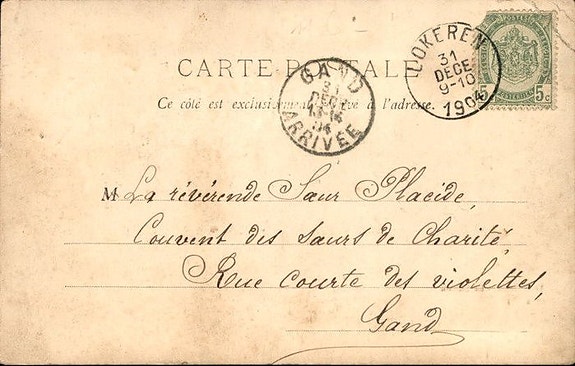 CARTE POSTALE
Ce côté est exclusivement réservé à l'adresse.
LOKEREN
31
DECE
9-10
1904
GAND
31
DECE
13-14
04
ARRIVÉE
5 5c
M La révérende Sœur Placide,
Couvent des sœurs de Charité,
Rue courte des violettes,
Gand